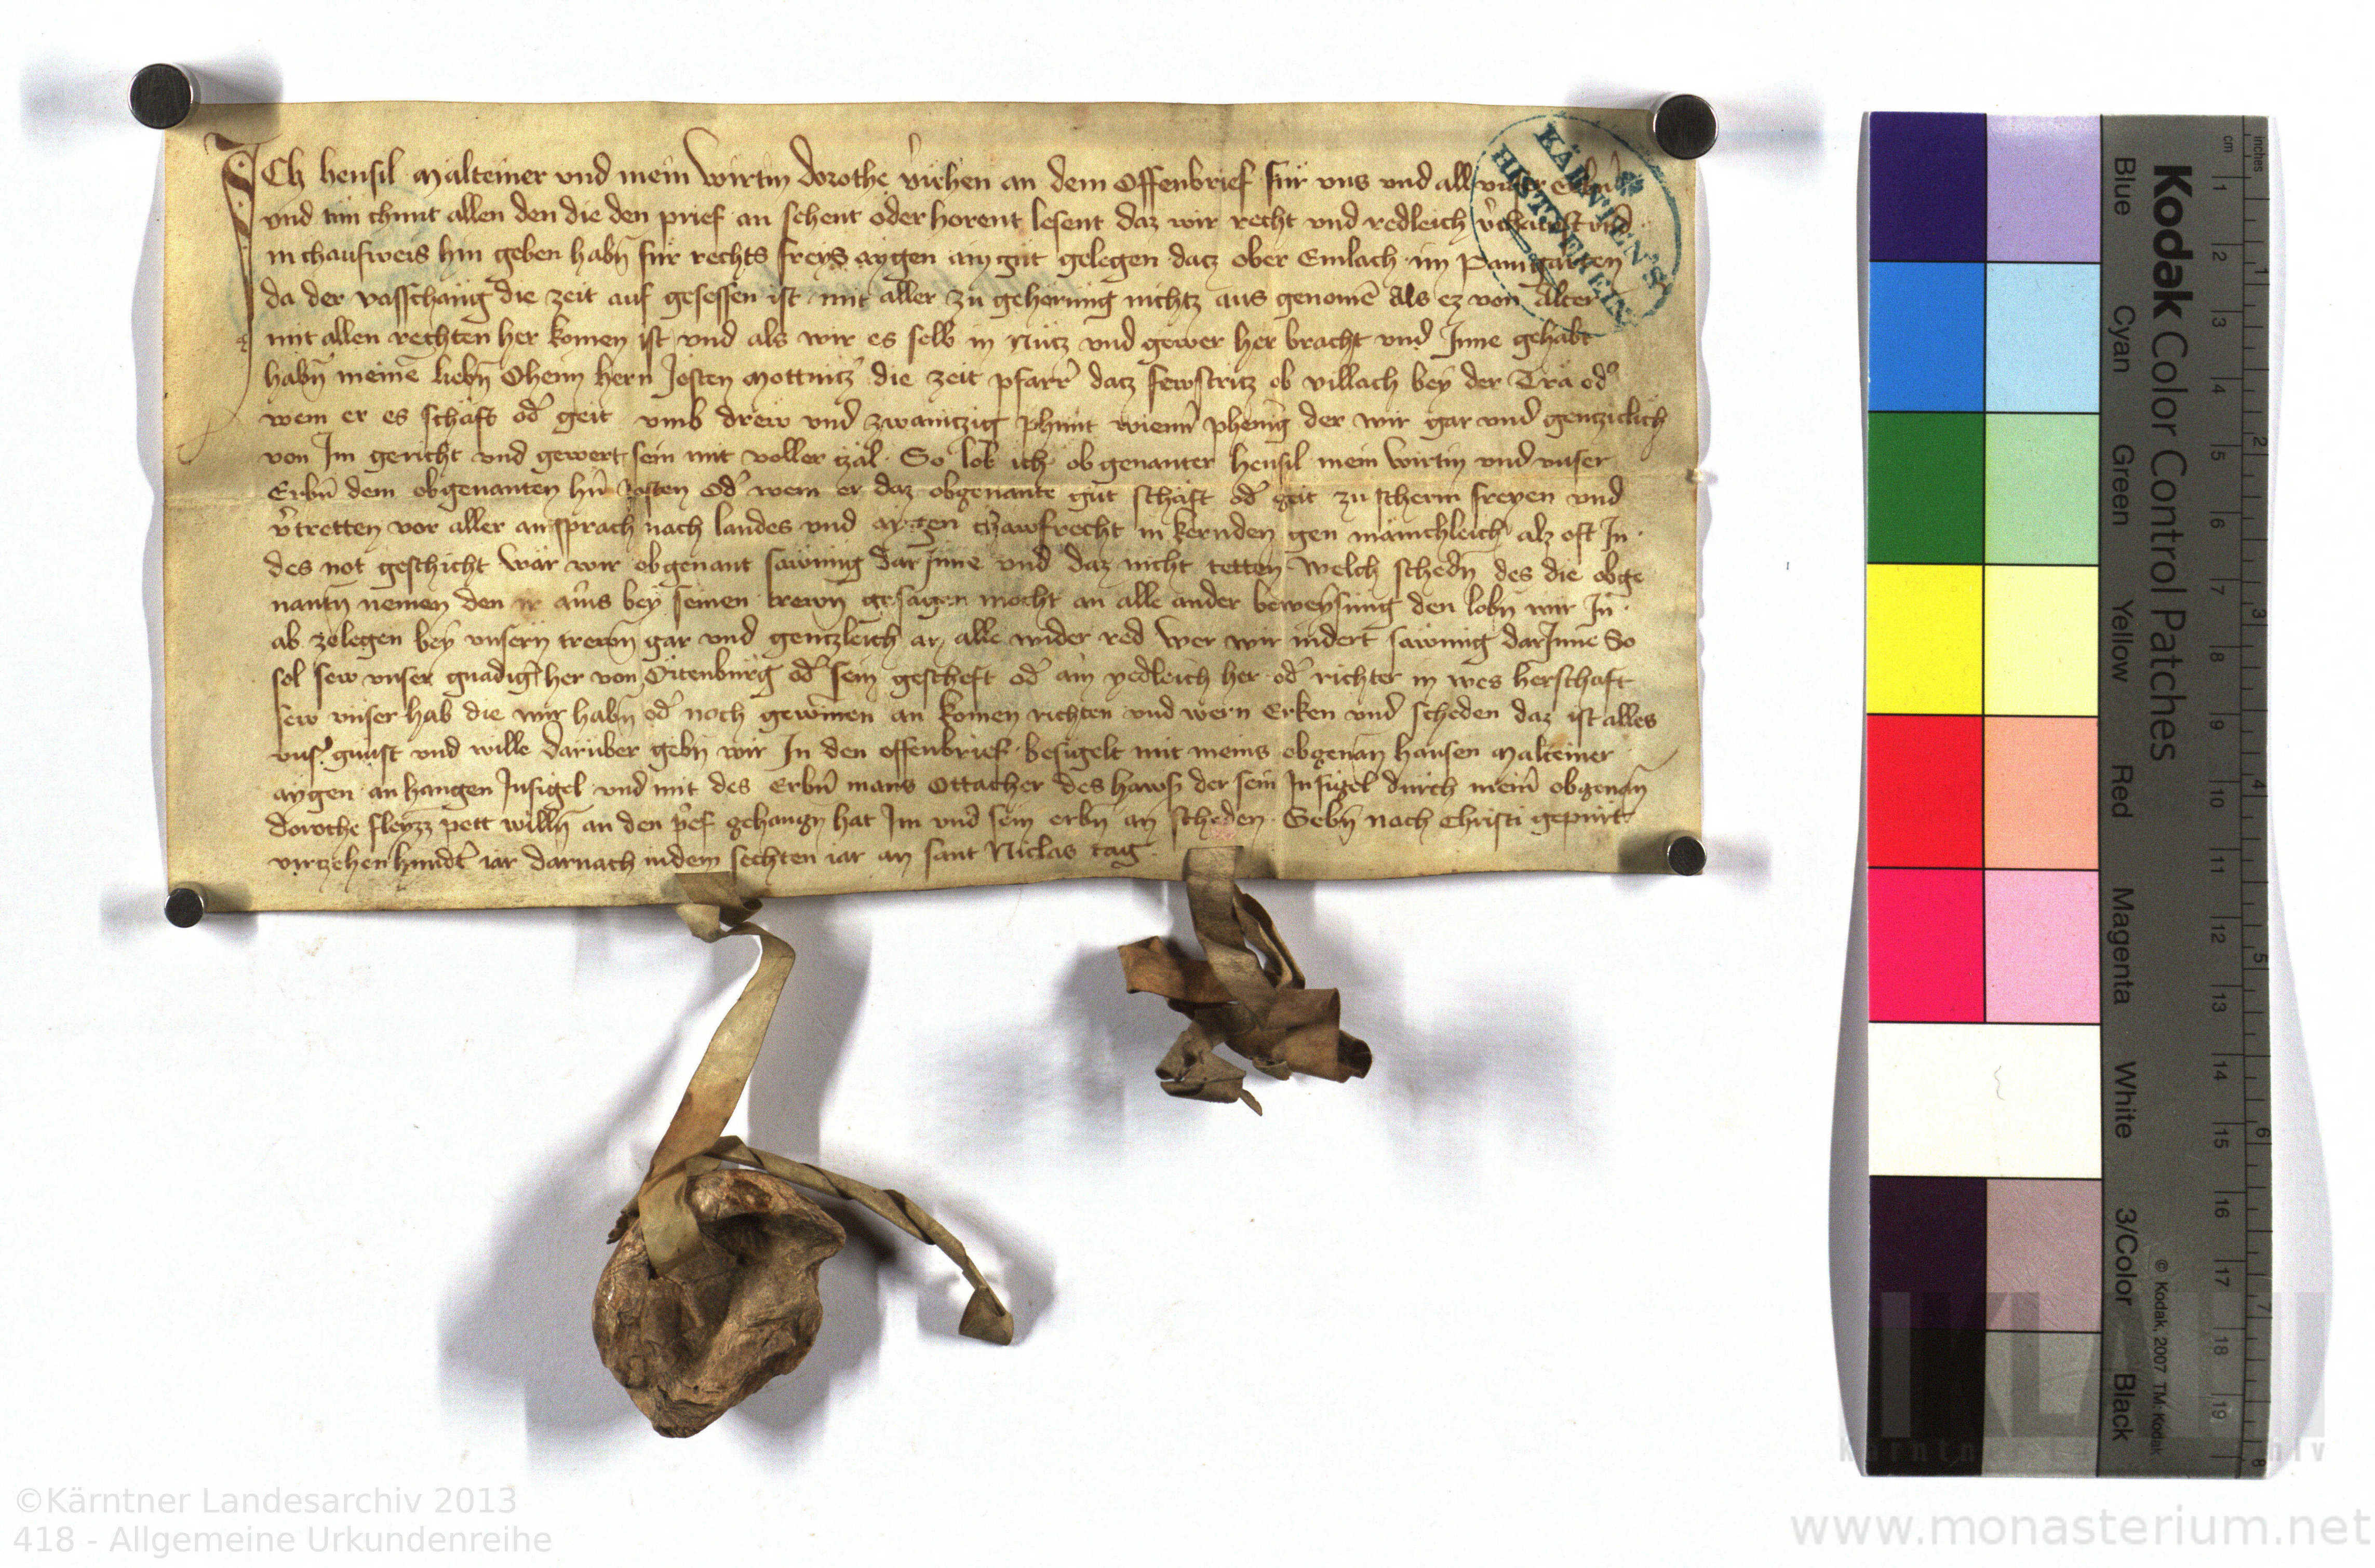 ICh hensil Malteiner vnd mein wirtin dorothe v̉iehen an dem Offenbrief für vns vnd all vnser
vnd tun chunt allen den die den prief an sehent oder horent lesent daz wir recht vnd redleich vnd
in chaufweis hin geben habn̄ für rechts freys aygen ain gut gelegen datz ober Emlach im Pamgarten
da der vasschang die zeit auf gesessen ist mit aller zu gehorung nichtz aus genomē als ez von Alter
mit allen rechten her komen ist vnd als wir es selb in Nutz vnd gewer her bracht vnd Inne gehabt
habn̄ meinē liebn̄ Ohem hern Josten Mottnitz̉ die zeit pfarr̉ datz fewstritz ob villach bey der Tra od̉
wem er es schaft od̉ geit vmb drew vnd zwaintzig phunt wienn̉ phenig der wir gar vnd gentzleich
von Im gericht vnd gewert sein mit voller zal So lob ich obgenanter hensil mein wirtin vnd vnser
Erbn̄ dem obgenanten hn̄ Josten Od̉ wem er daz obgenante gut schaft od̉ geit zu scherm freyen vnd
v̉tretten vor aller ansprach nach landes vnd aygen chawfrecht in kernden gen mainchleich alz oft In
des not geschicht wär wir obgenant sawmig dar Inne vnd daz nicht tetten welch schedn̄ des die obge
nantn̄ nemen den ir ains bey seinen trewn̄ gesagen mocht an alle ander beweysung den lobn̄ wir In
ab zelegen bey vnsern trewn̄ gar vnd gentzleich an alle wider red Wer wir indert sawmig darInne So
sol sew vnser gnadig̉ her von Ortenburg od̉ sein gescheft od̉ ain yedleich her od̉ richter in wes herschaft
sew vnser hab die wir habn̄ od̉ noch gewinen an komen richten vnd wern Erken vnd scheden daz ist alles
vns̉ gunst vnd wille darüber gebn̄ wir In den offenbrief besigelt mit meins obgenan̄ hansen Malteiner
aygen anhangen Insigel vnd mit des Erbn̄ mans Ottacher des haws der sein Insigel durch mein̉ obgenan̄
dorothe fleyzz pett willn̄ an den p̉ef gehangn̄ hat Im vnd sein erbn̄ an scheden Gebn̄ nach Christi gepurt
virzehenhundt̉ iar darnach indem sechten iar an sant Niclas tag
KÄRNTEN'S
HIST. VEREIN
Kodak Color Control Patches
Blue Cyan Green Yellow Red Magenta White 3/Color Black
cm 1 2 3 4 5 6 7 8 9 10 11 12 13 14 15 16 17 18 19
inches 1 2 3 4 5 6 7 8
© Kodak, 2007 TM: Kodak
©Kärntner Landesarchiv 2013
418 - Allgemeine Urkundenreihe
www.monasterium.net